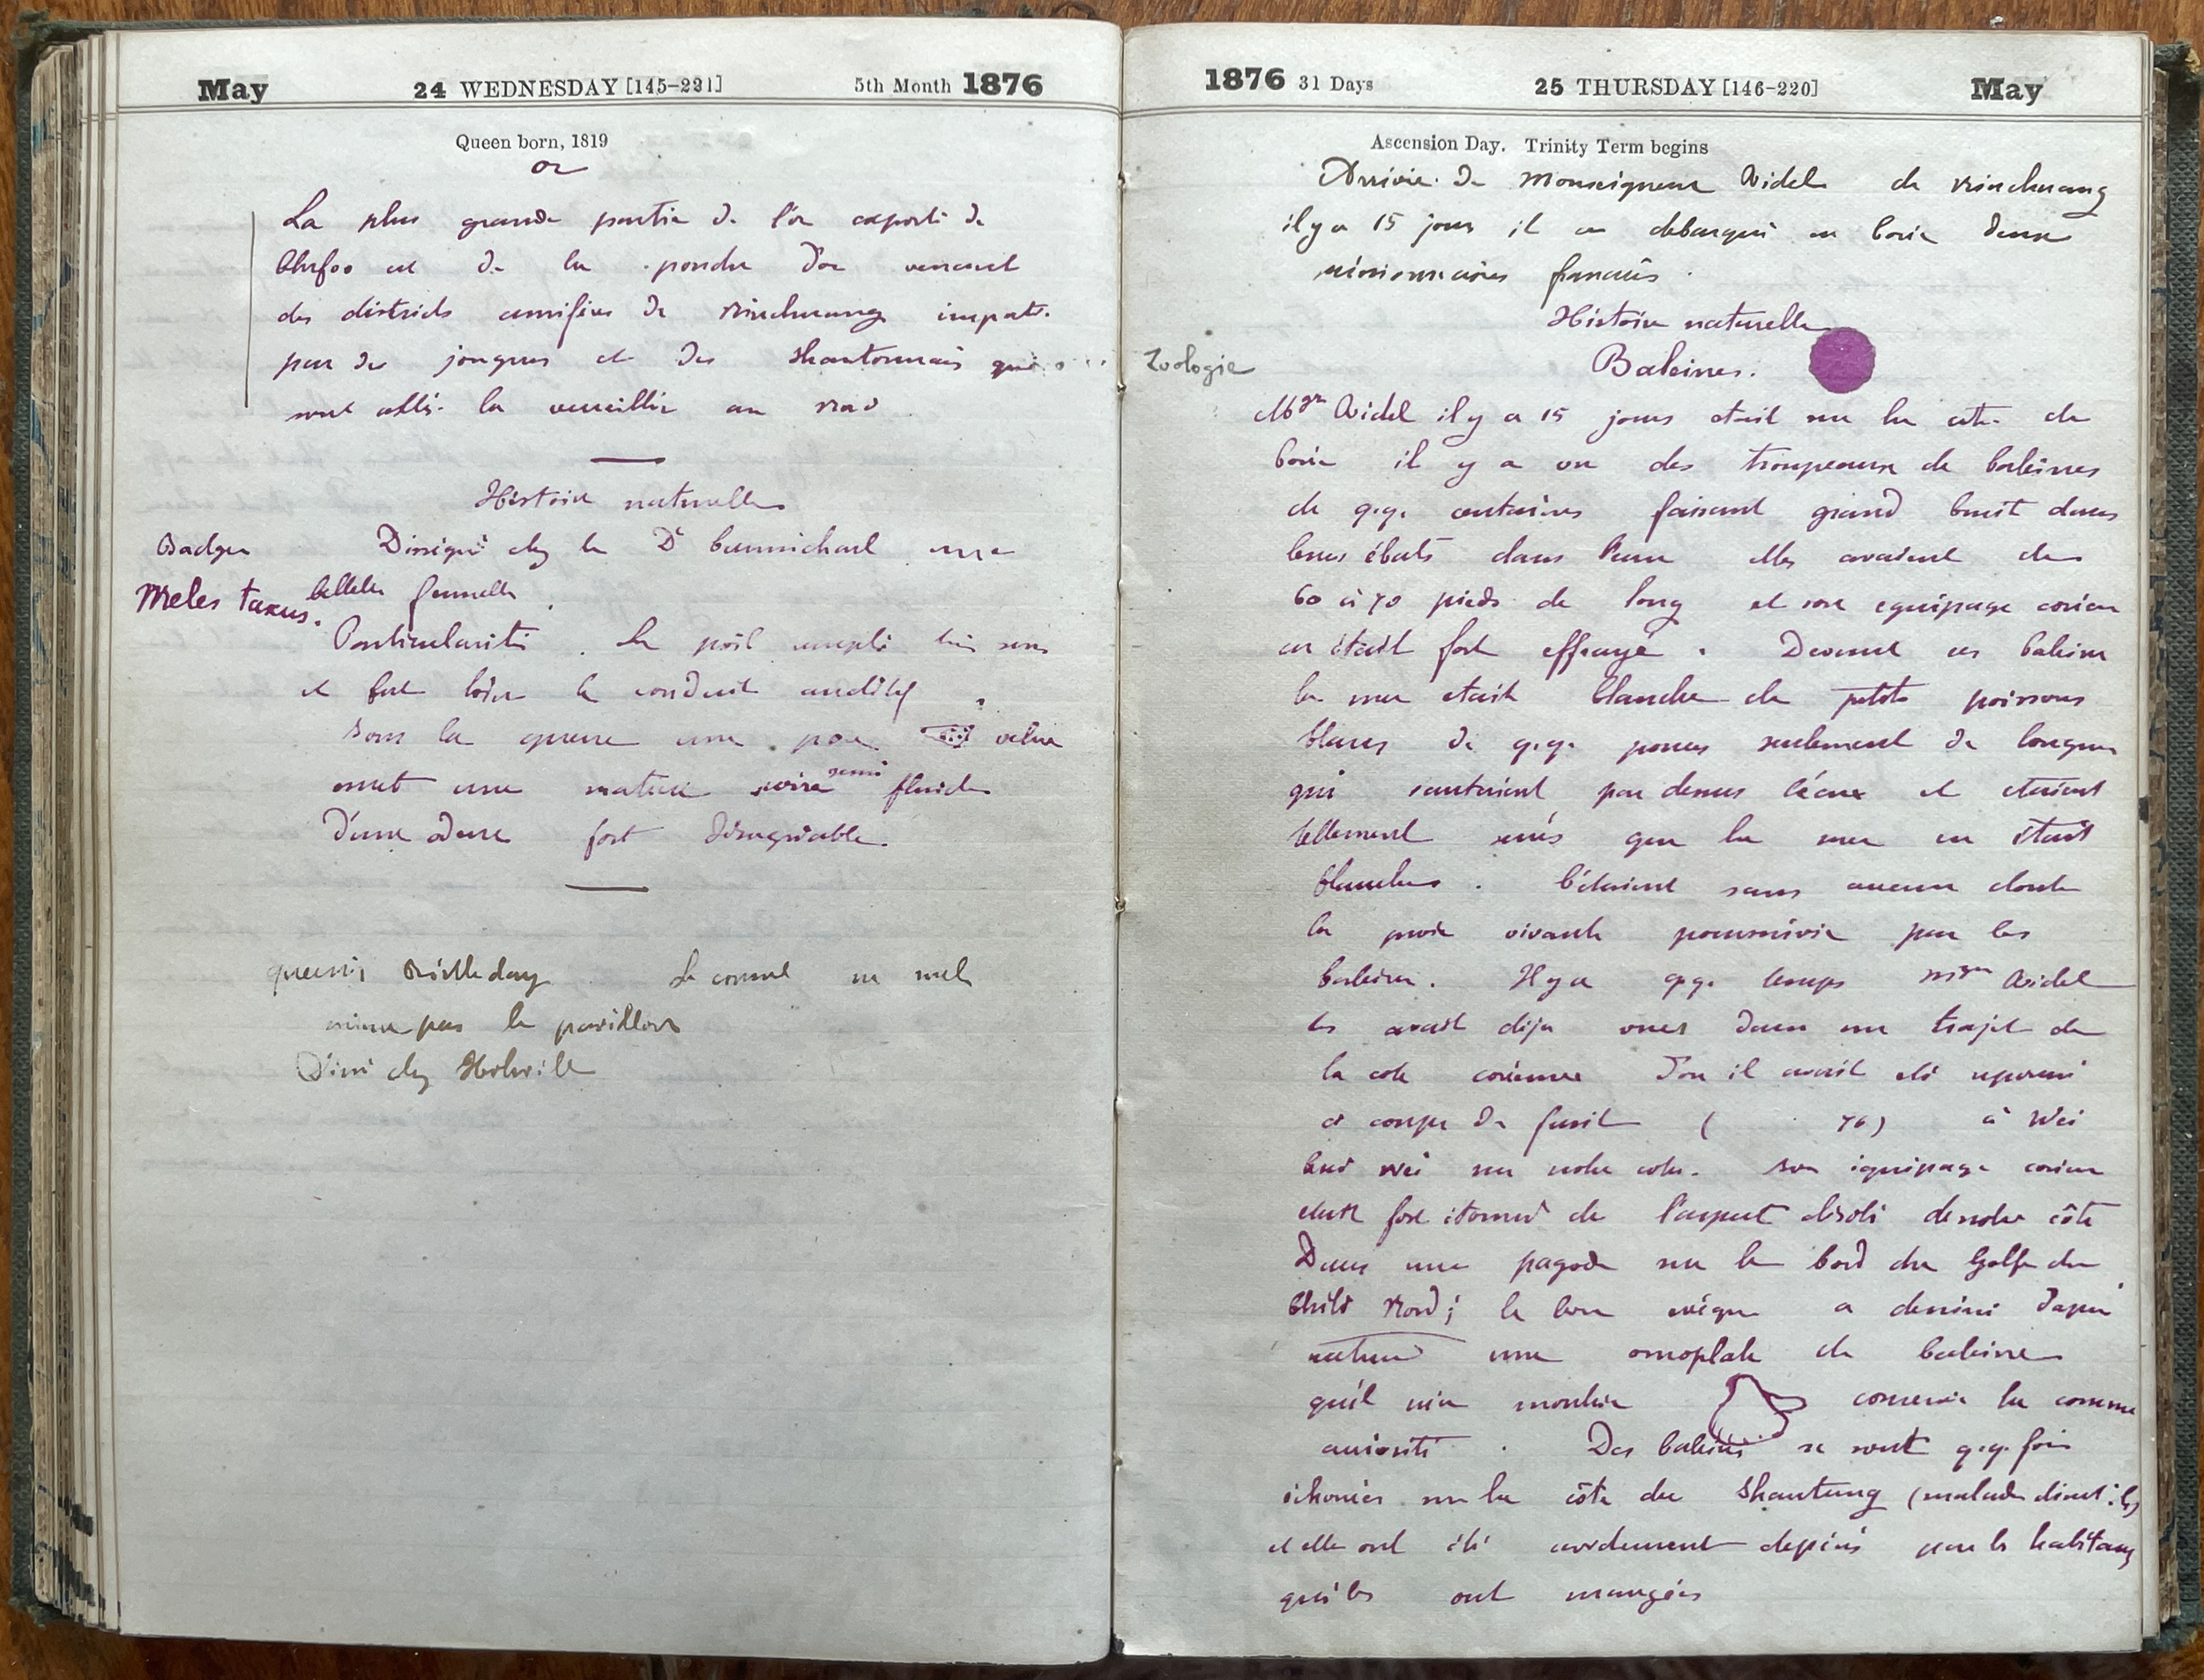 May 24 WEDNESDAY [145-221] 5th Month 1876
Queen born, 1819
or
La plus grande partie de l'or exporté de
Chefoo est de la poudre d'or venant
des districts aurifères de Vinchuang import.
par des jonques et des Shantonnais qui
sont allés la recueillir au nord
Histoire naturelle
Badger
Disséqué chez le Dr Carmichael une
Meles taxus.
belette femelle
Particularité. Le poil
et fort loin le conduit auditif
sous la queue une valve
omet une matière noire semi fluide
d'une odeur fort désagréable.
queen's Birthday Le consul ne met
même pas le pavillon
Diné chez Holwill
1876 31 Days 25 THURSDAY [146-220] May
Ascension Day. Trinity Term begins
Arrivée de Monseigneur Ridel de Vinchuang
il y a 15 jours il a debarqué en Corée deux
missionnaires français.
Histoire naturelle
Zoologie
Baleines.
Mgr Ridel il y a 15 jours etait sur la cote de
Corée il y a vu des troupeaux de baleines
de q.q. centaines faisant grand bruit dans
leurs ébats dans l'eau elles avaient de
60 à 70 pieds de long et son equipage coréen
en était fort effrayé. Devant ces baleines
la mer etait blanche de petits poissons
blancs de q.q. pouces seulement de longueur
qui sautaient par dessus l'eau et etaient
tellement serrés que la mer en était
blanche. C'étaient sans aucun doute
la proie vivante poursuivie par les
baleines. Il y a q.q. temps Mgr Ridel
les avait deja vues dans un trajet de
la cote coréenne d'ou il avait eté repoussé
à coups de fusil ( 76) à Wei
hai wei sur notre cote. Son équipage coréen
etait fort étonné de l'aspect désolé de notre côte
Dans une pagode sur le bord du Golfe du
Chili Nord; le bon evêque a dessiné d'après
nature une omoplate de baleine
qu'il m'a montrée conservée la comme
curiosité. Des baleines se sont q.q. fois
échouées sur la côte du Shantung (malades disent-ils)
et elles ont été avidement depecés par les habitans
qui les ont mangées